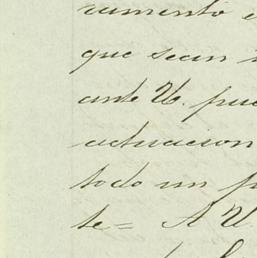 rumento e
que sean
ante U. pue
actuacion
todo un p
te= A U